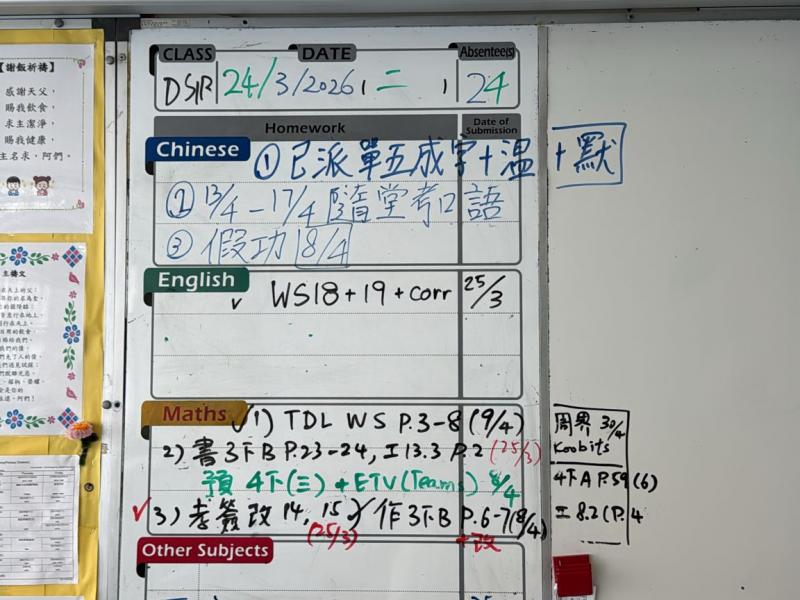 【謝飯祈禱】
感謝天父，
賜我飲食，
求主潔淨，
賜我健康，
主名求，阿們。
主禱文
CLASS DATE Absentee(s)
24/3/2026, 二 24
Homework Date of Submission
Chinese ① 已派單五成字+溫+默
② 13/4-17/4 隨堂考口語
③ 假功 8/4
English
WS18+19+corr 25/3
Maths 1) TDL WS P.3-8 (9/4)
2) 書3下B P.23-24, 工13.3 P.2 (25/3)
預 4下(三)+ETV(Teams) 8/4
3) 考簽改 14, 15 / 作3下B P.6-7 (8/4)
(25/3) +改
Other Subjects
周界 30/4
Koobits
4下A P.59 (6)
工 8.2 (P.4